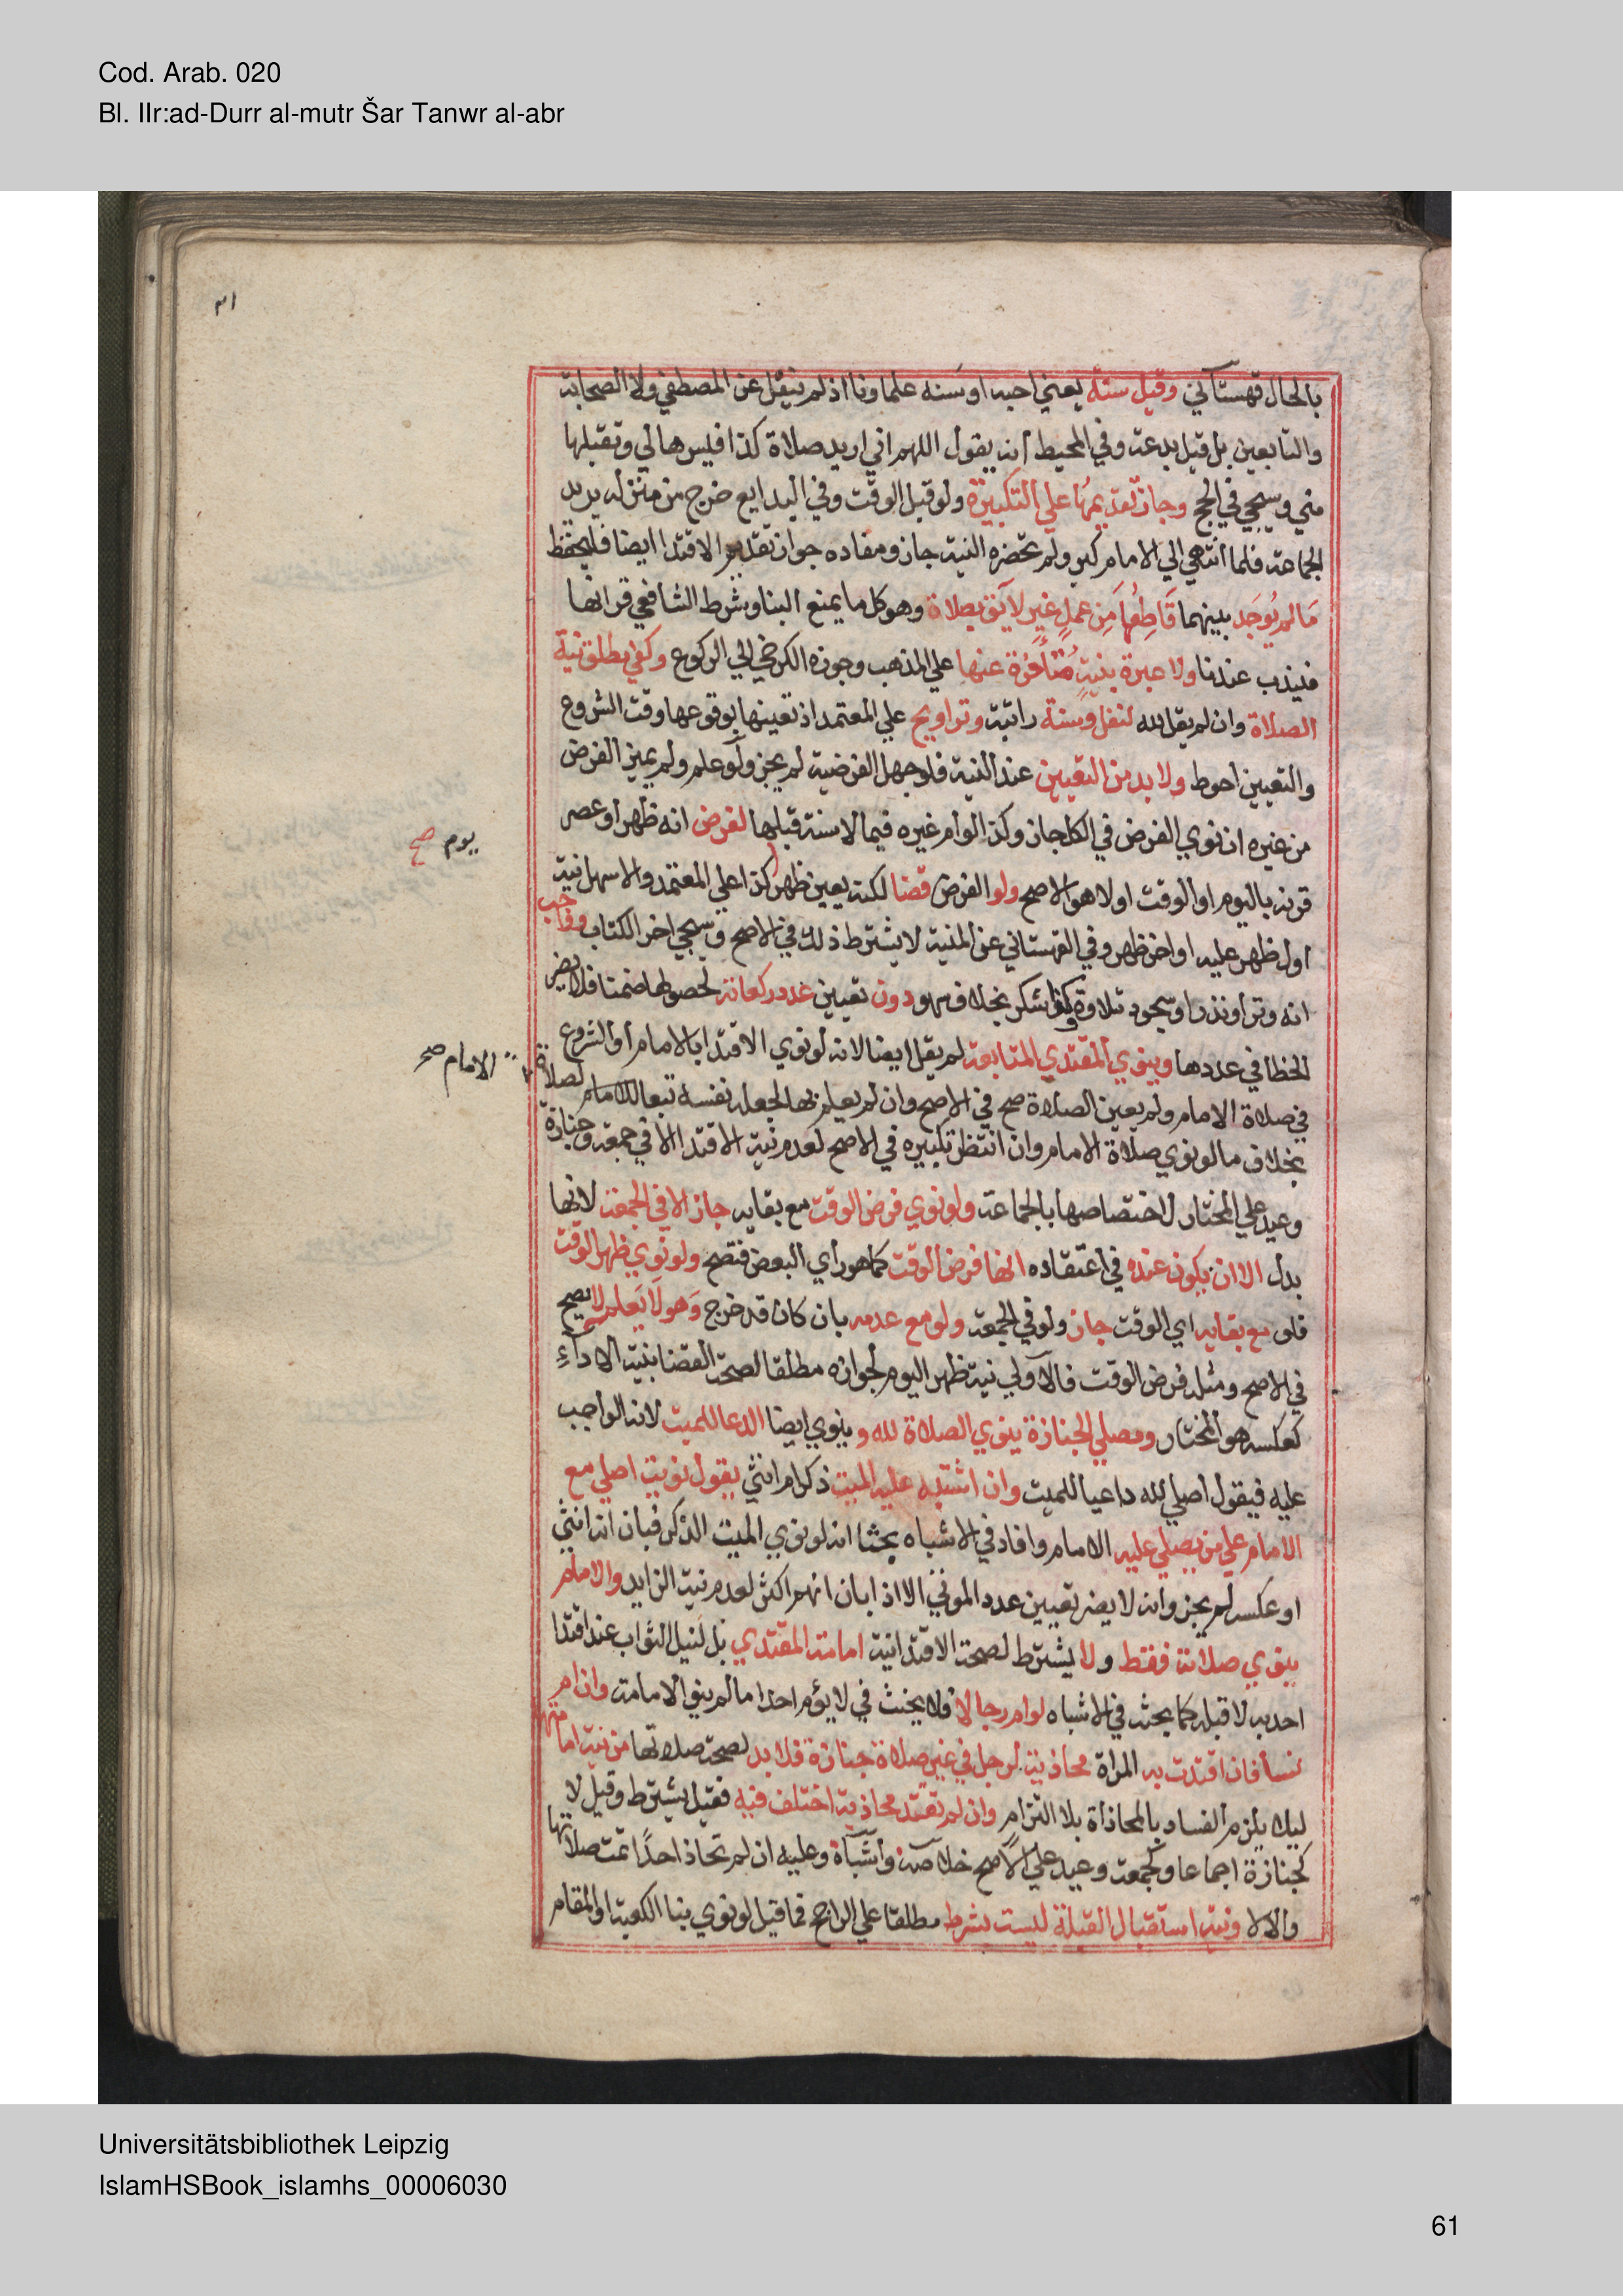 Cod. Arab. 020
Bl. IIr:ad-Durr al-mutr Šar Tanwr al-abr
٣١
بالحال قهستاني وقيل سنة يعني احبه او سنه علماونا اذ لم ينقل عن المصطفي ولا الصحابة
والتابعين بل قيل بدعة وفي المحيط أنه يقول اللهم اني اريد صلاة كذا فيسرها لي وتقبلها
مني وسيجي في الحج وجاز تقديمها علي التكبيرة ولو قبل الوقت وفي البدايع خرج من منزله يريد
الجماعة فلما انتهي الي الامام كبر ولم تحضره النية جاز ومفاده جواز تقديم الاقتدا ايضا فليحفظ
مَا لم يُوجَد بينهما قَاطِعُها مِن عملٍ غير لايق بصلاة وهو كل ما يمنع البنا وشرط الشافعي قرانها
فيندب عندنا ولا عبرة بنيةٍ متأخرة عنها علي المذهب وجوزه الكرخي الي الركوع وكفي مطلق نية
الصلاة وان لم يقل لله لنفل وسنة راتبة وتراويح علي المعتمد اذ تعيينها بوقوعها وقت الشروع
والتعيين احوط ولا بد من التعيين عند النية فلو جهل الفرضية لم يجز ولو علم ولم يميز الفرض
من غيره ان نوي الفرض في الكل جاز وكذا لو ام غيره فيما لا سنة قبلها لفرض انه ظهر او عصر
يوم صح
قرنه باليوم او الوقت اولا هو الاصح ولو الفرض قضا لكنه يعين ظهر كذا علي المعتمد والاسهل نية
اول ظهر عليه او اخر ظهر وفي القهستاني عن المنية لا يشترط ذلك في الاصح وسيجي اخر الكتاب وواجب
انه وتر أو نذر او سجود تلاوة وكذا شكر بخلاف سهو دون تعيين عدد ركعاته لحصولها ضمنا فلا يضر
الخطا في عددها وينوي المقتدي المتابعة لم يقل ايضا لانه لو نوي الاقتدا بالامام أو الشروع
الامام صح
في صلاة الامام ولم يعين الصلاة صح في الاصح وان لم يعلم بها لجعله نفسه تبعا للامام لصلاة
بخلاف ما لو نوي صلاة الامام وان انتظر تكبيره في الاصح لعدم نية الاقتدا الا في جمعة وجنازة
وعيد علي المختار لاختصاصها بالجماعة ولو نوي فرض الوقت مع بقايه جاز الا في الجمعة لانها
بدل الا ان يكون عنده في اعتقاده انها فرض الوقت كما هو راي البعض فتصح ولو نوي ظهر الوقت
فلو مع بقايه اي الوقت جاز ولو في الجمعة ولو مع عدمه بان كان قد خرج وَهو لَا يَعلمه لا يصح
في الاصح ومثله فرض الوقت فالاولي نية ظهر اليوم لجوازه مطلقا لصحة القضا بنية الاداءِ
كعكسه هو المختار ومصلي الجنازة ينوي الصلاة لله وينوي ايضا الدعا للميت لانه الواجب
عليه فيقول اصلي لله داعيا للميت وان اشتبه عليه الميت ذكر ام انثي يقول نويت اصلي مع
الامام علي من يصلي عليه الامام وافاد في الاشباه بحثا انه لو نوي الميت الذكر فبان انه انثي
او عكسه لم يجز وانه لا يضر تعيين عدد الموتي الا اذا بان انهم اكثر لعدم نية الزايد والامام
ينوي صلاته فقط ولا يشترط لصحة الاقتدا نية امامة المقتدي بل لنيل الثواب عند اقتدا
احد به لا قبله كما بحثه في الاشباه لو ام رجالا فلا يحنث في لا يؤم احدا ما لم ينو الامامة وان ام
نسأ فان اقتدت به المراة محاذية لرجل في غير صلاة جنازة فلا بد لصحة صلاتها من نية امامتها
ليلا يلزم الفساد بالمحاذاة بلا التزام وان لم تقتد محاذية اختلف فيه فقيل يشترط وقيل لا
كجنازة اجماعا وكجمعة وعيد علي الاصح خلاصة وأشباه وعليه ان لم تحاذ احدًا تمت صلاتها
والا لا ونية استقبال القبلة ليست بشرط مطلقا علي الراجح فما قيل لو نوي بنا الكعبة او المقام
Universitätsbibliothek Leipzig
IslamHSBook_islamhs_00006030
61